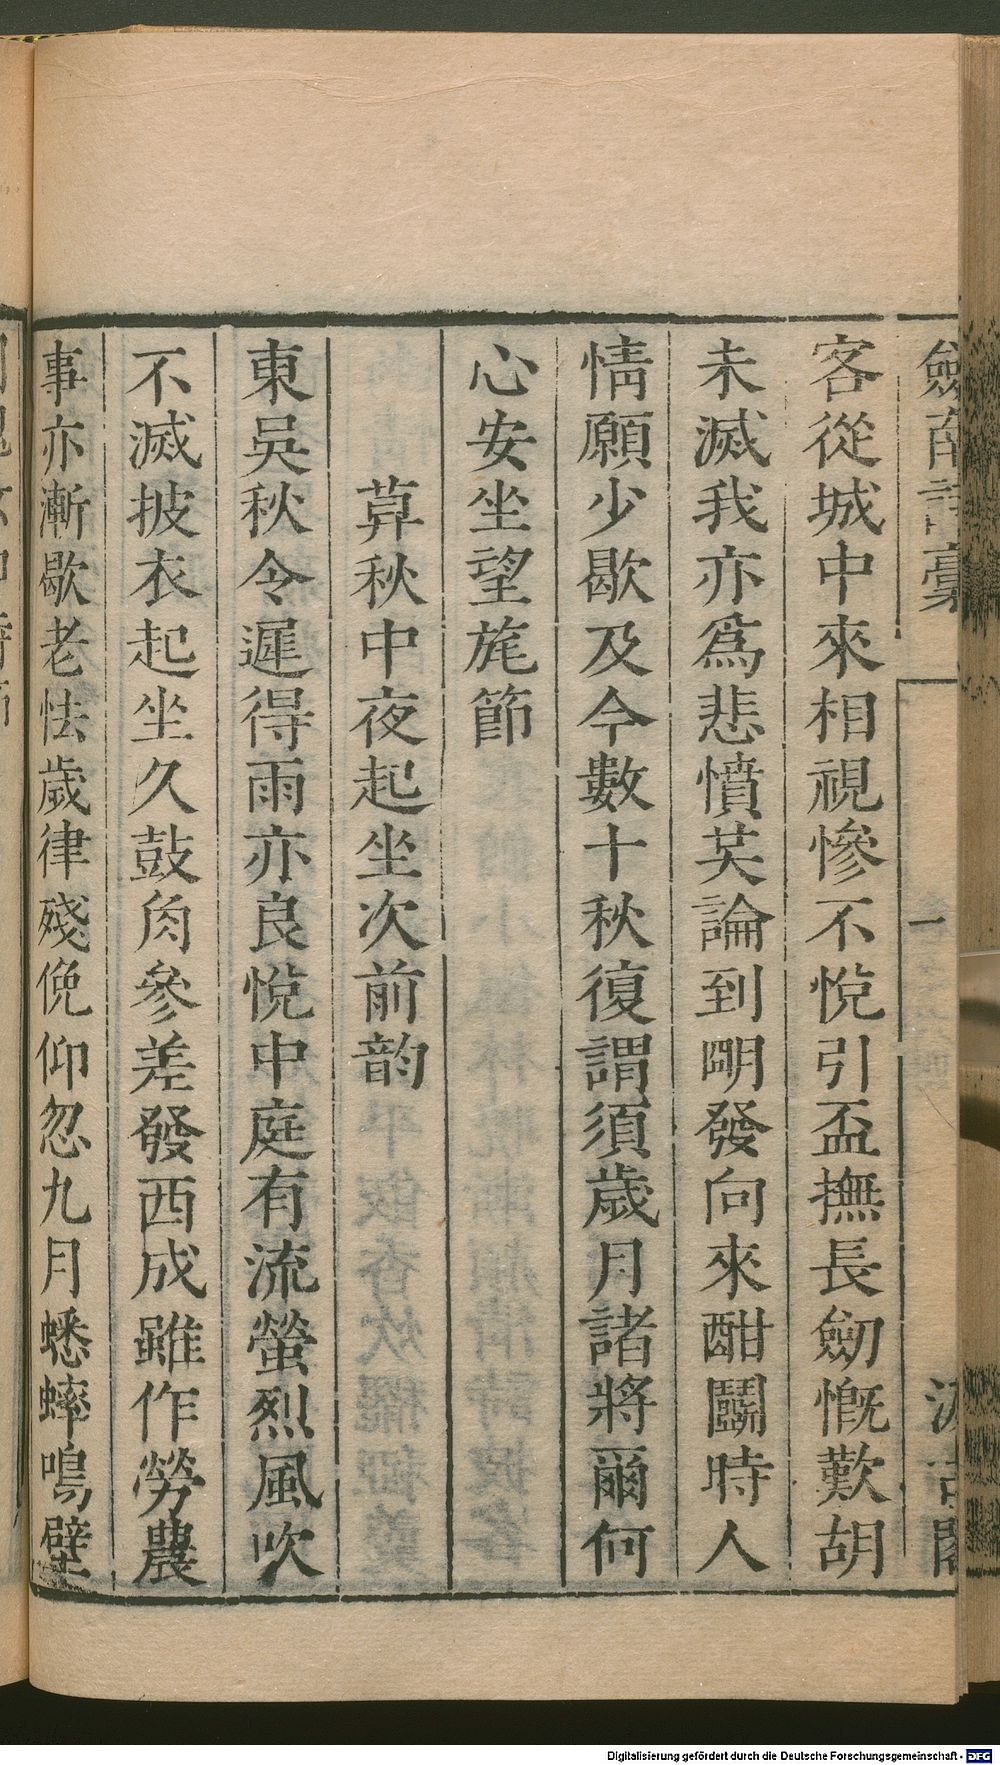 劒南詩稾
一
汲古閣
客從城中來相視慘不悅引盃撫長劒慨歎胡
未滅我亦爲悲憤英論到明發向來酣鬬時人
情願少歇及今數十秋復謂須歲月諸將爾何
心安坐望旄節
莫秋中夜起坐次前韵
東吳秋令遲得雨亦良悅中庭有流螢烈風吹
不滅披衣起坐久鼓角參差發西成雖作勞農
事亦漸歇老怯歲律殘俛仰忽九月蟋蟀鳴壁
Digitalisierung gefördert durch die Deutsche Forschungsgemeinschaft - DFG